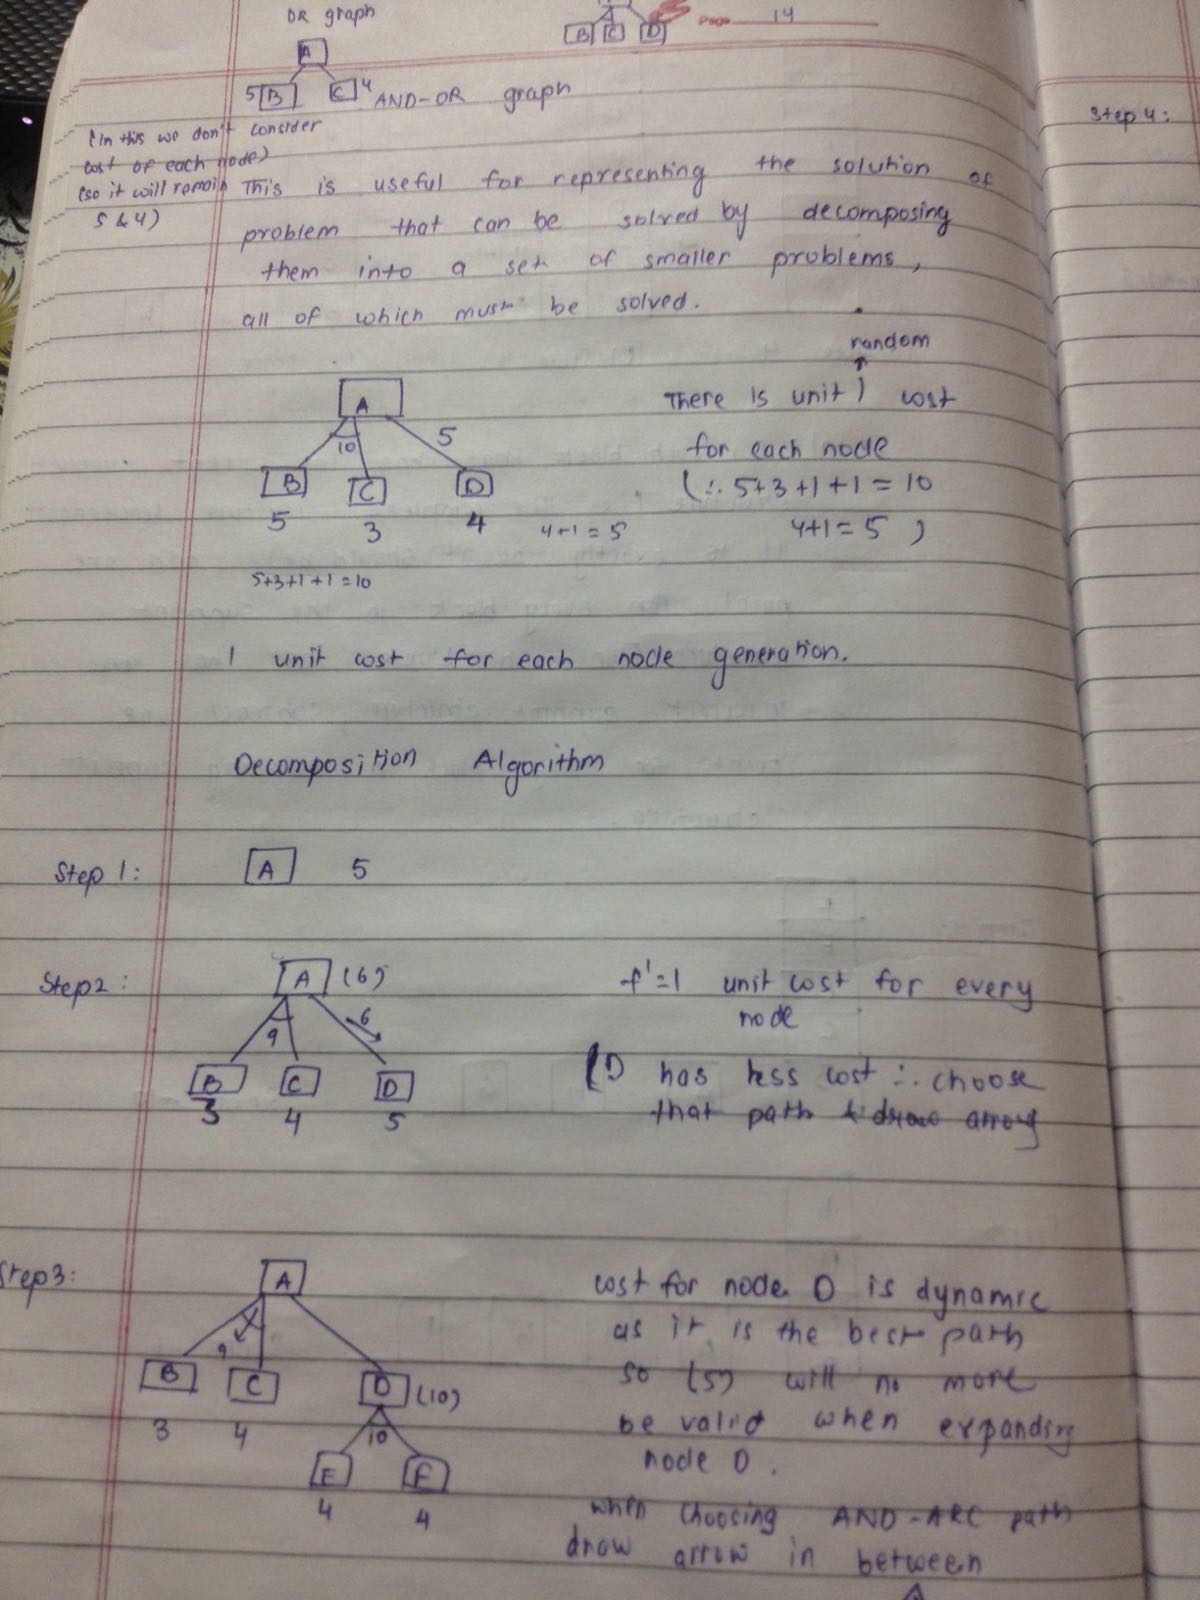 OR graph
Page 14
A
B C D
5 B C 4
AND-OR graph
(In this we don't consider
cost of each node)
(so it will remain
5 & 4)
This is useful for representing the solution of
problem that can be solved by decomposing
them into a set of smaller problems,
all of which must be solved.
random
A
There is unit 1 cost
10 5
for each node
B C D
(∴ 5+3+1+1=10
5 3 4 4+1=5
4+1=5 )
5+3+1+1=10
1 unit cost for each node generation.
Decomposition Algorithm
Step 1: A 5
Step2: A (6)
f'=1 unit cost for every
node
9 6
B C D
3 4 5
(D has less cost ∴ choose
that path & draw arrow
Step3: A
cost for node D is dynamic
as it is the best path
so (5) will no more
be valid when expanding
node D.
9
B C D (10)
3 4 10
E F
4 4
when choosing AND-ARC path
draw arrow in between
Step 4: